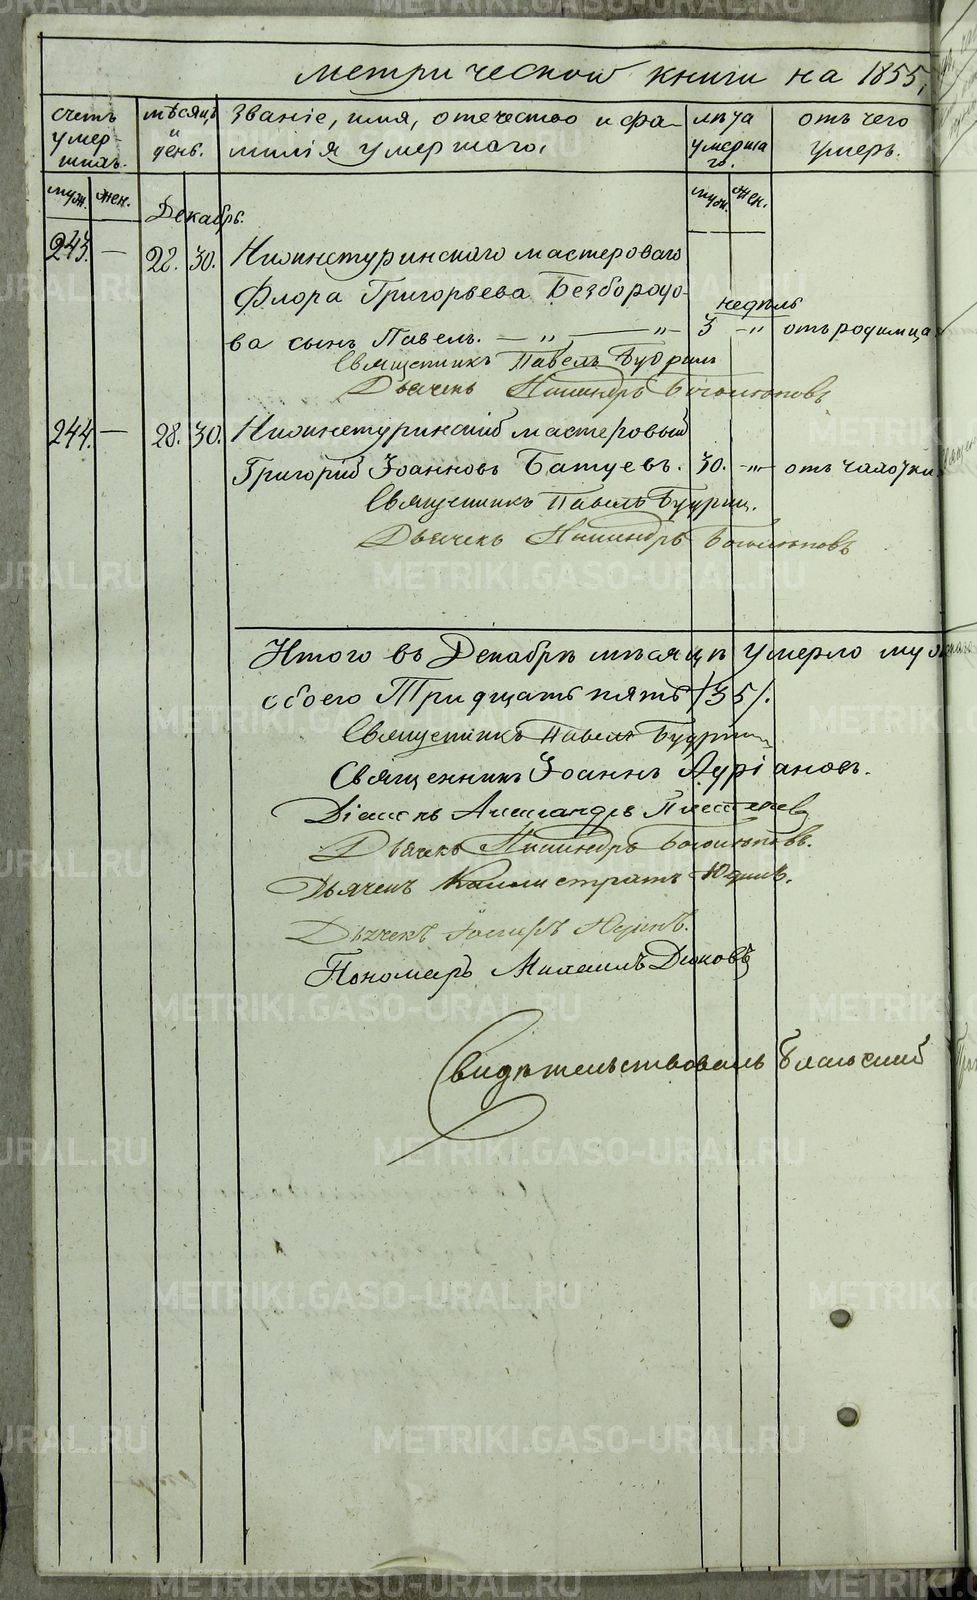 метрической книги на 1855,
счетъ умер- шихъ.
мѣсяцъ и день.
Званіе, имя, отечество и фа-
милія умершаго.
лѣта умерша го.
отъ чего умеръ.
муж. жен.
Декабрь.
муж. жен.
243. — 28. 30. Нижнетуринскаго мастероваго
Флора Григорьева Безбородо-
недѣль
ва сынъ Павелъ. — „ — „ — 3 — „ отъ родимца
Священникъ Павелъ Будрин
Дьячекъ Никандръ
244. — 28. 30. Нижнетуринскій мастеровый
Григорій Іоанновъ Батуевъ. 30. — „ — отъ чахотки
Священникъ Павелъ Будрин.
Дьячекъ Никандръ
Итого въ Декабрѣ мѣсяцѣ умерло
обоего Тридцать пять /35/.
Священникъ Павелъ Будрин
Священникъ Іоаннъ Адріановъ.
Діаконъ Александръ
Дьячекъ Никандръ
Дьячекъ Каллистратъ Юдинъ.
Дьячекъ
Пономарь Михаилъ Дюковъ
Свидѣтельствовалъ
METRIKI.GASO-URAL.RU